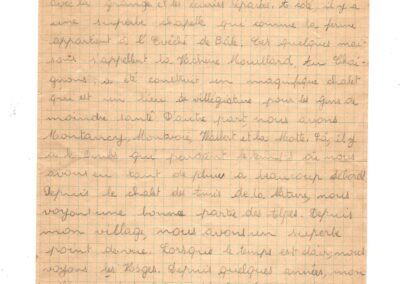 avec la grange et les écuries séparées. A côté, il y a
une superbe chapelle qui comme la ferme
appartient à l'Evêché de Bâle. Ces quelques mai-
sons s'appellent la Vacherie Mouillard. Au Chai-
gnons, a été construit un magnifique chalet
qui est un lieu de villégiature pour les gens de
moindre santé. D'autre part nous avons
Montancy, Montavoie, et la Motte. Là, il y
a le Doubs qui pendant où nous
avons eu tant de pluies a beaucoup débordé
Depuis le chalet des amis de la Nature, nous
voyons une bonne partie des Alpes. Depuis
mon village, nous avons un superbe
point de vue. Lorsque le temps est clair, nous
voyons les Vosges. Depuis quelques années, mon